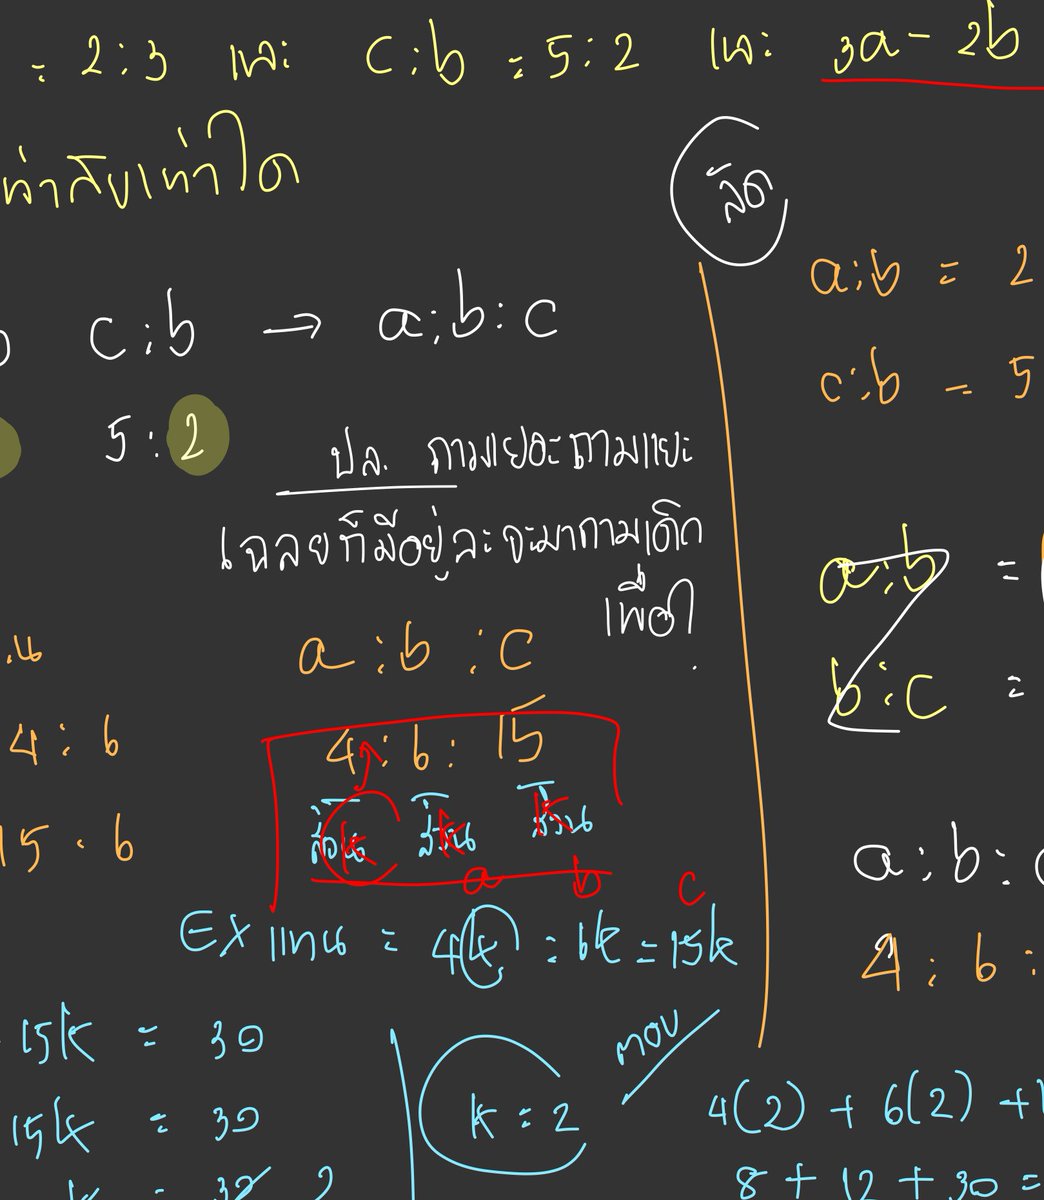 = 2 : 3 และ c : b = 5 : 2 และ 3a - 2b
เท่ากับเท่าใด
ลัด
a : b = 2
c : b → a : b : c
c : b = 5
5 : 2
ปล. ถามแยอะถามแยะ
เฉลยก็มีอยู่ละจะมาถาม
เพื่อ?
a : b =
b : c =
a : b : c
4 : 6
4 : 6 : 15
ส่วน ส่วน ส่วน
k k k
15 : 6
a b c
EX แทน = 4k = 6k = 15k
a : b :
4 : 6 :
15k = 30
ตอบ
k = 2
15k = 30
4(2) + 6(2) +
8 + 12 + 30 =